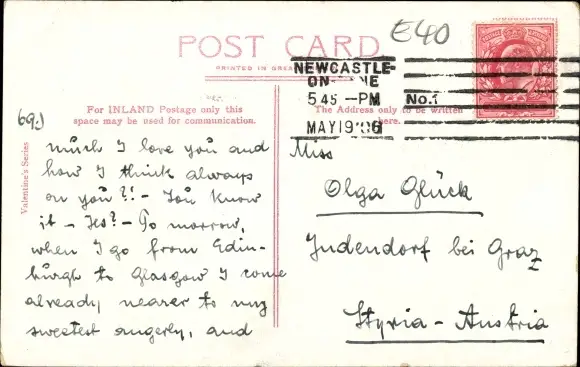 E40
POST CARD
PRINTED IN GREA
NEWCASTLE-
ON- NE
5 45 -PM No.1
MAY 19 '06
For INLAND Postage only this
space may be used for communication.
The Address only to be written
here.
Valentine's Series
69.)
much I love you and
how I think always
on you?! - You know
it - Yes? - To morrow,
when I go from Edin-
burgh to Glasgow I come
already nearer to my
sweetest angerly, and
Miss
Olga Glück
Judendorf bei Graz
Styria - Austria